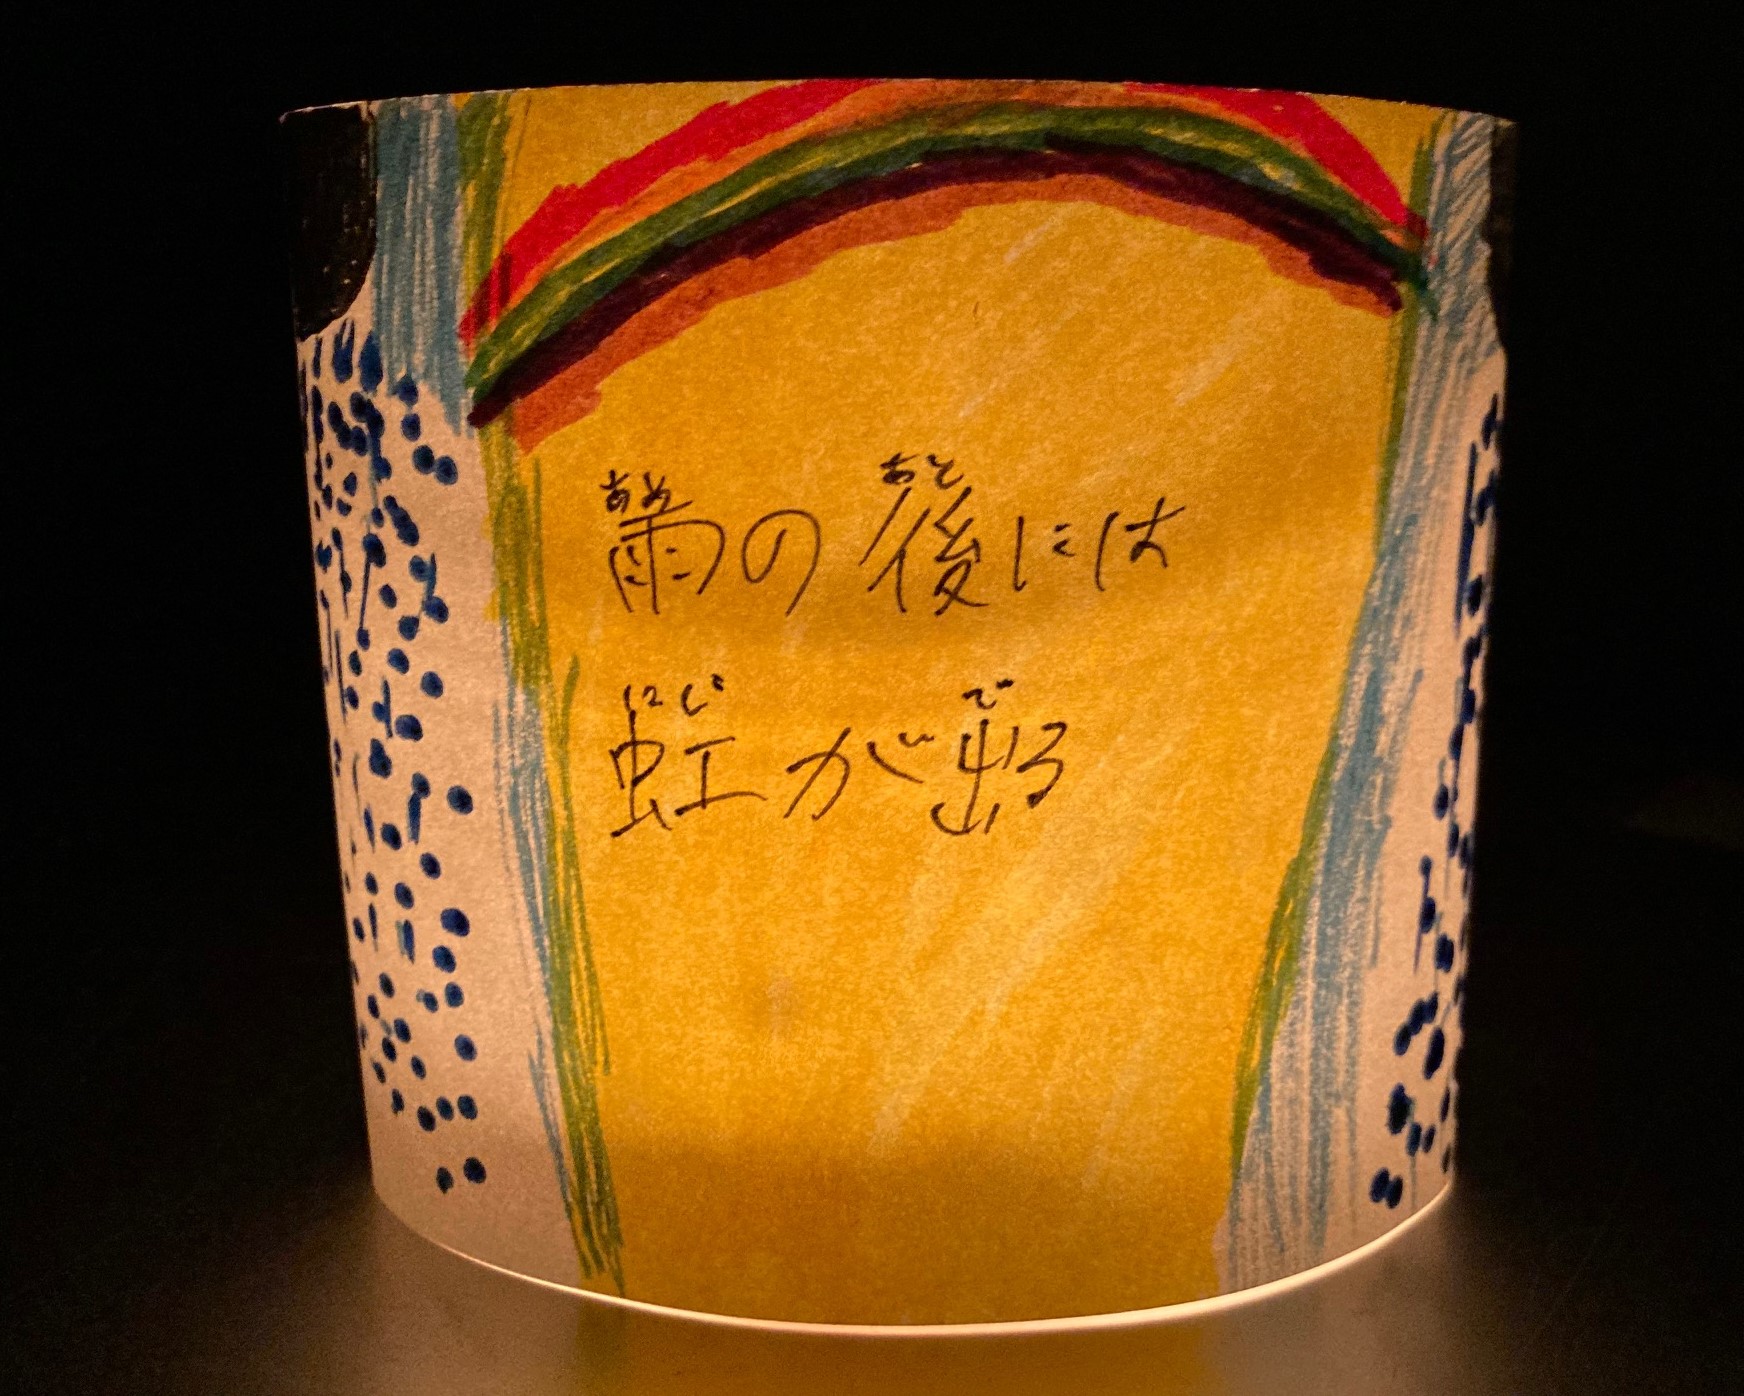 あめ あと
雨の後には
にじ で
虹が出る